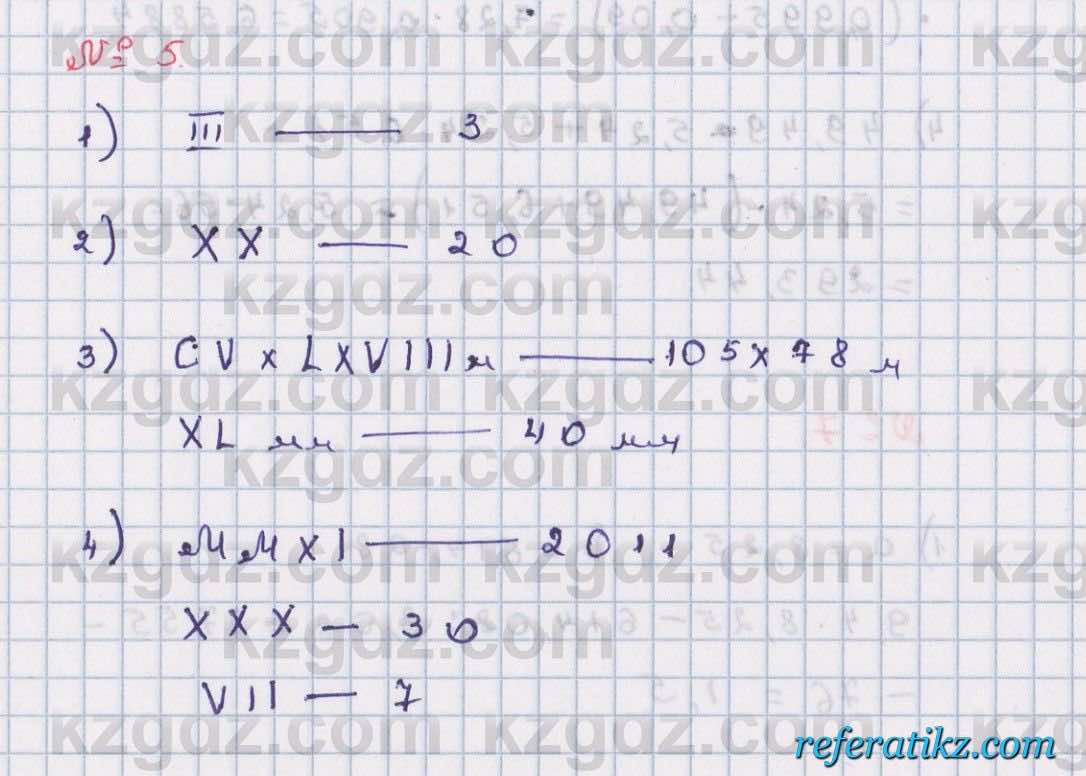 № 5.
1) III — 3
2) XX — 20
3) CV x LXVIII м — 105 x 78 м
XL мм — 40 мм
4) MMXI — 2011
XXX — 30
VII — 7
kzgdz.com
referatikz.com